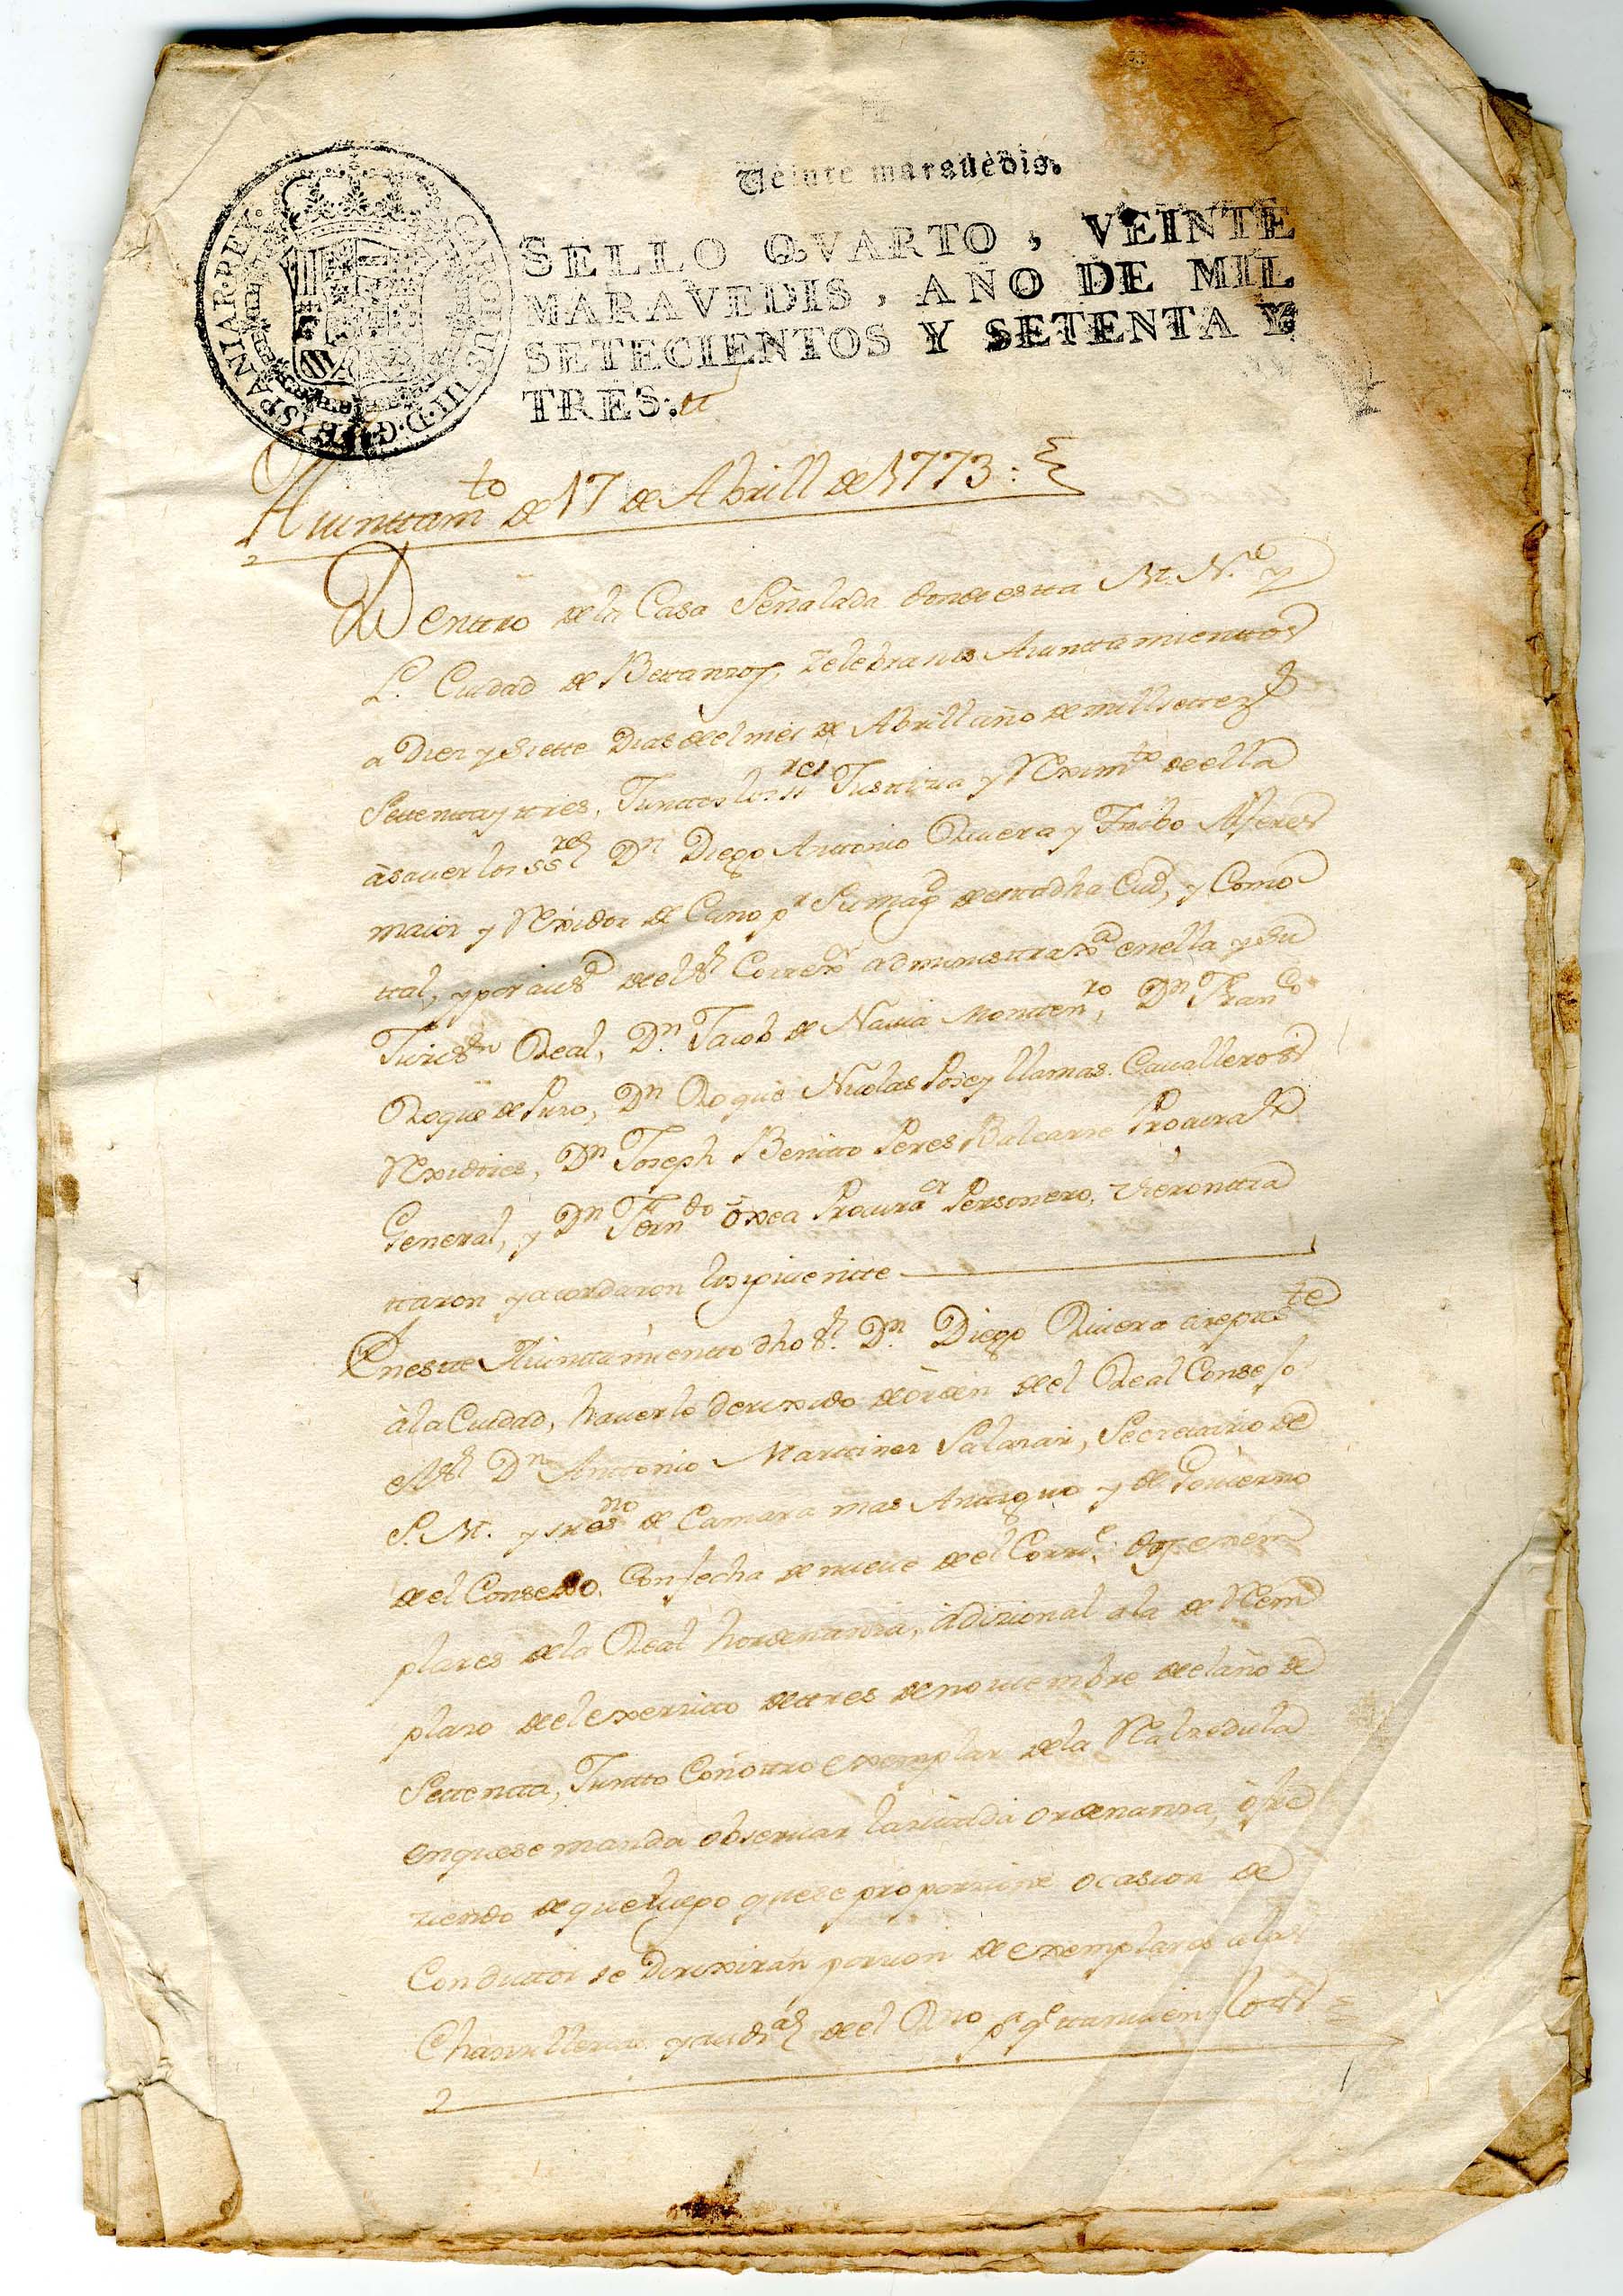 Veinte maravedis.
CAROLUS·III·D·G·HISPANIAR·REX·
SELLO QVARTO, VEINTE
MARAVEDIS, AÑO DE MIL
SETECIENTOS Y SETENTA Y
TRES.
Aiunttamto de 17 de Abrill de 1773:
Denttro de la Casa Señalada donde estta M. N. y
L. Ciudad de Bettanzos, zelebra sus Aiunttamienttos
a Diez y Siette Dias de el mes de Abrill año de mill settez.s
Settenta y ttres, Junttos los ss.res Justtizia y Reximto de ella
àsauer los ssres Dn Diego Anttonio Riuera y Taibo Alferes
maior y Rexidor de Cano pr Su Magd de estta dha Ciud, y Como
ttal, y por aus.a de el Sr Correxr administtra Xa en ella y su
Jurisdn Real, Dn Jacob de Nauia Montten.ro, Dn Franco
Roque de Puzo, Dn Roque Nicolas Pose y llamas Caualleros
Rexidores, Dn Joseph Benitto Peres Balcarse Procurador
General, y Dn Ferndo òxea Procurador Personero, Zieron ttra
ttaron y acordaron lo siguientte
En estte Aiunttamientto dho Sr. Dn Diego Riuera expuste
àla Ciudad, hauerle derixido de òrden de el Real Consejo
el Sr Dn Anttonio Marttinez Salazar, Secrettario de
S. M. y su esno de Camara mas Anttiguo y de Gouierno
de el Consejo. Con fecha de nueue de el Corrte dos exem
plares de la Real hordenanza, àdizional ala de Reem
plazo de el exerzitto de ttres de nouiembre de el año de
Settenta, Juntto Con òttro exemplar de la Rl zedula
en que se manda obseruar la zittada ordenanza, òfre
ziendo de que luego que se proporzione ocasion de
Conducttor se Dirixirán porzion de exemplares alas
Chanzillerias y audias de el Rno pa qe ttamuien los